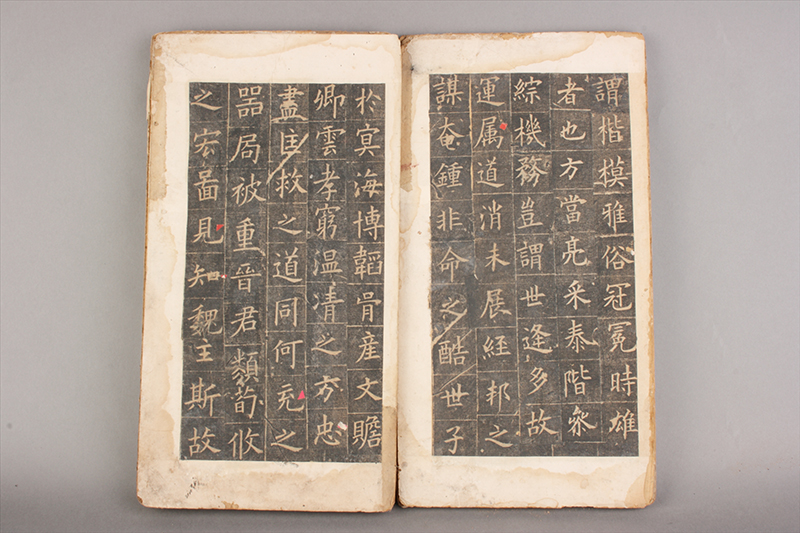 謂楷模雅俗冠冕時雄
者也方當亮采泰階叅
綜機務豈謂世逢多故
運属道消未展經邦之
謀奄鍾非命之酷世子
於冥海博韜骨產文贍
卿雲孝窮温凊之方忠
盡匡救之道同何充之
器局被重晉君類荀攸
之宏啚見知魏主斯故